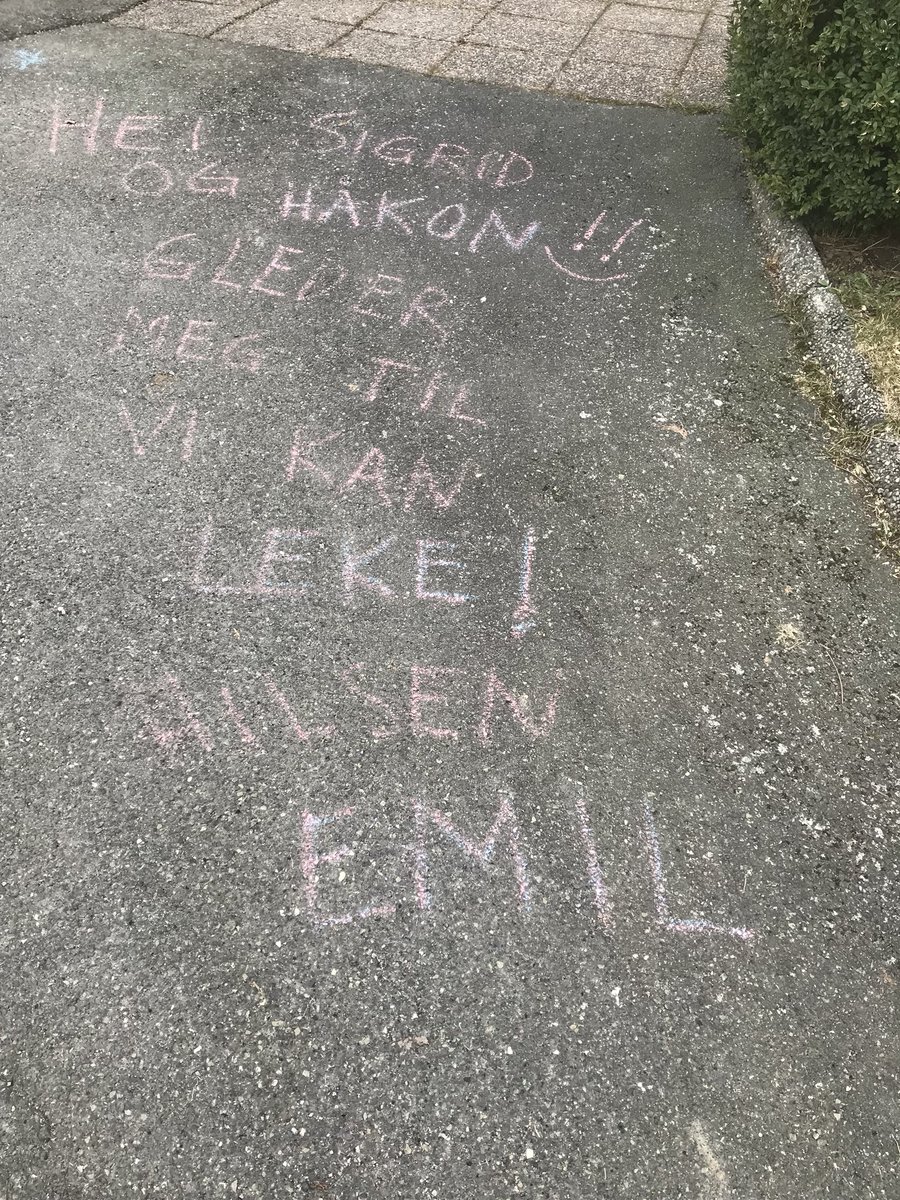 HEI SIGRID
OG HÅKON !!
GLEDER
MEG TIL
VI KAN
LEKE !
HILSEN
EMIL